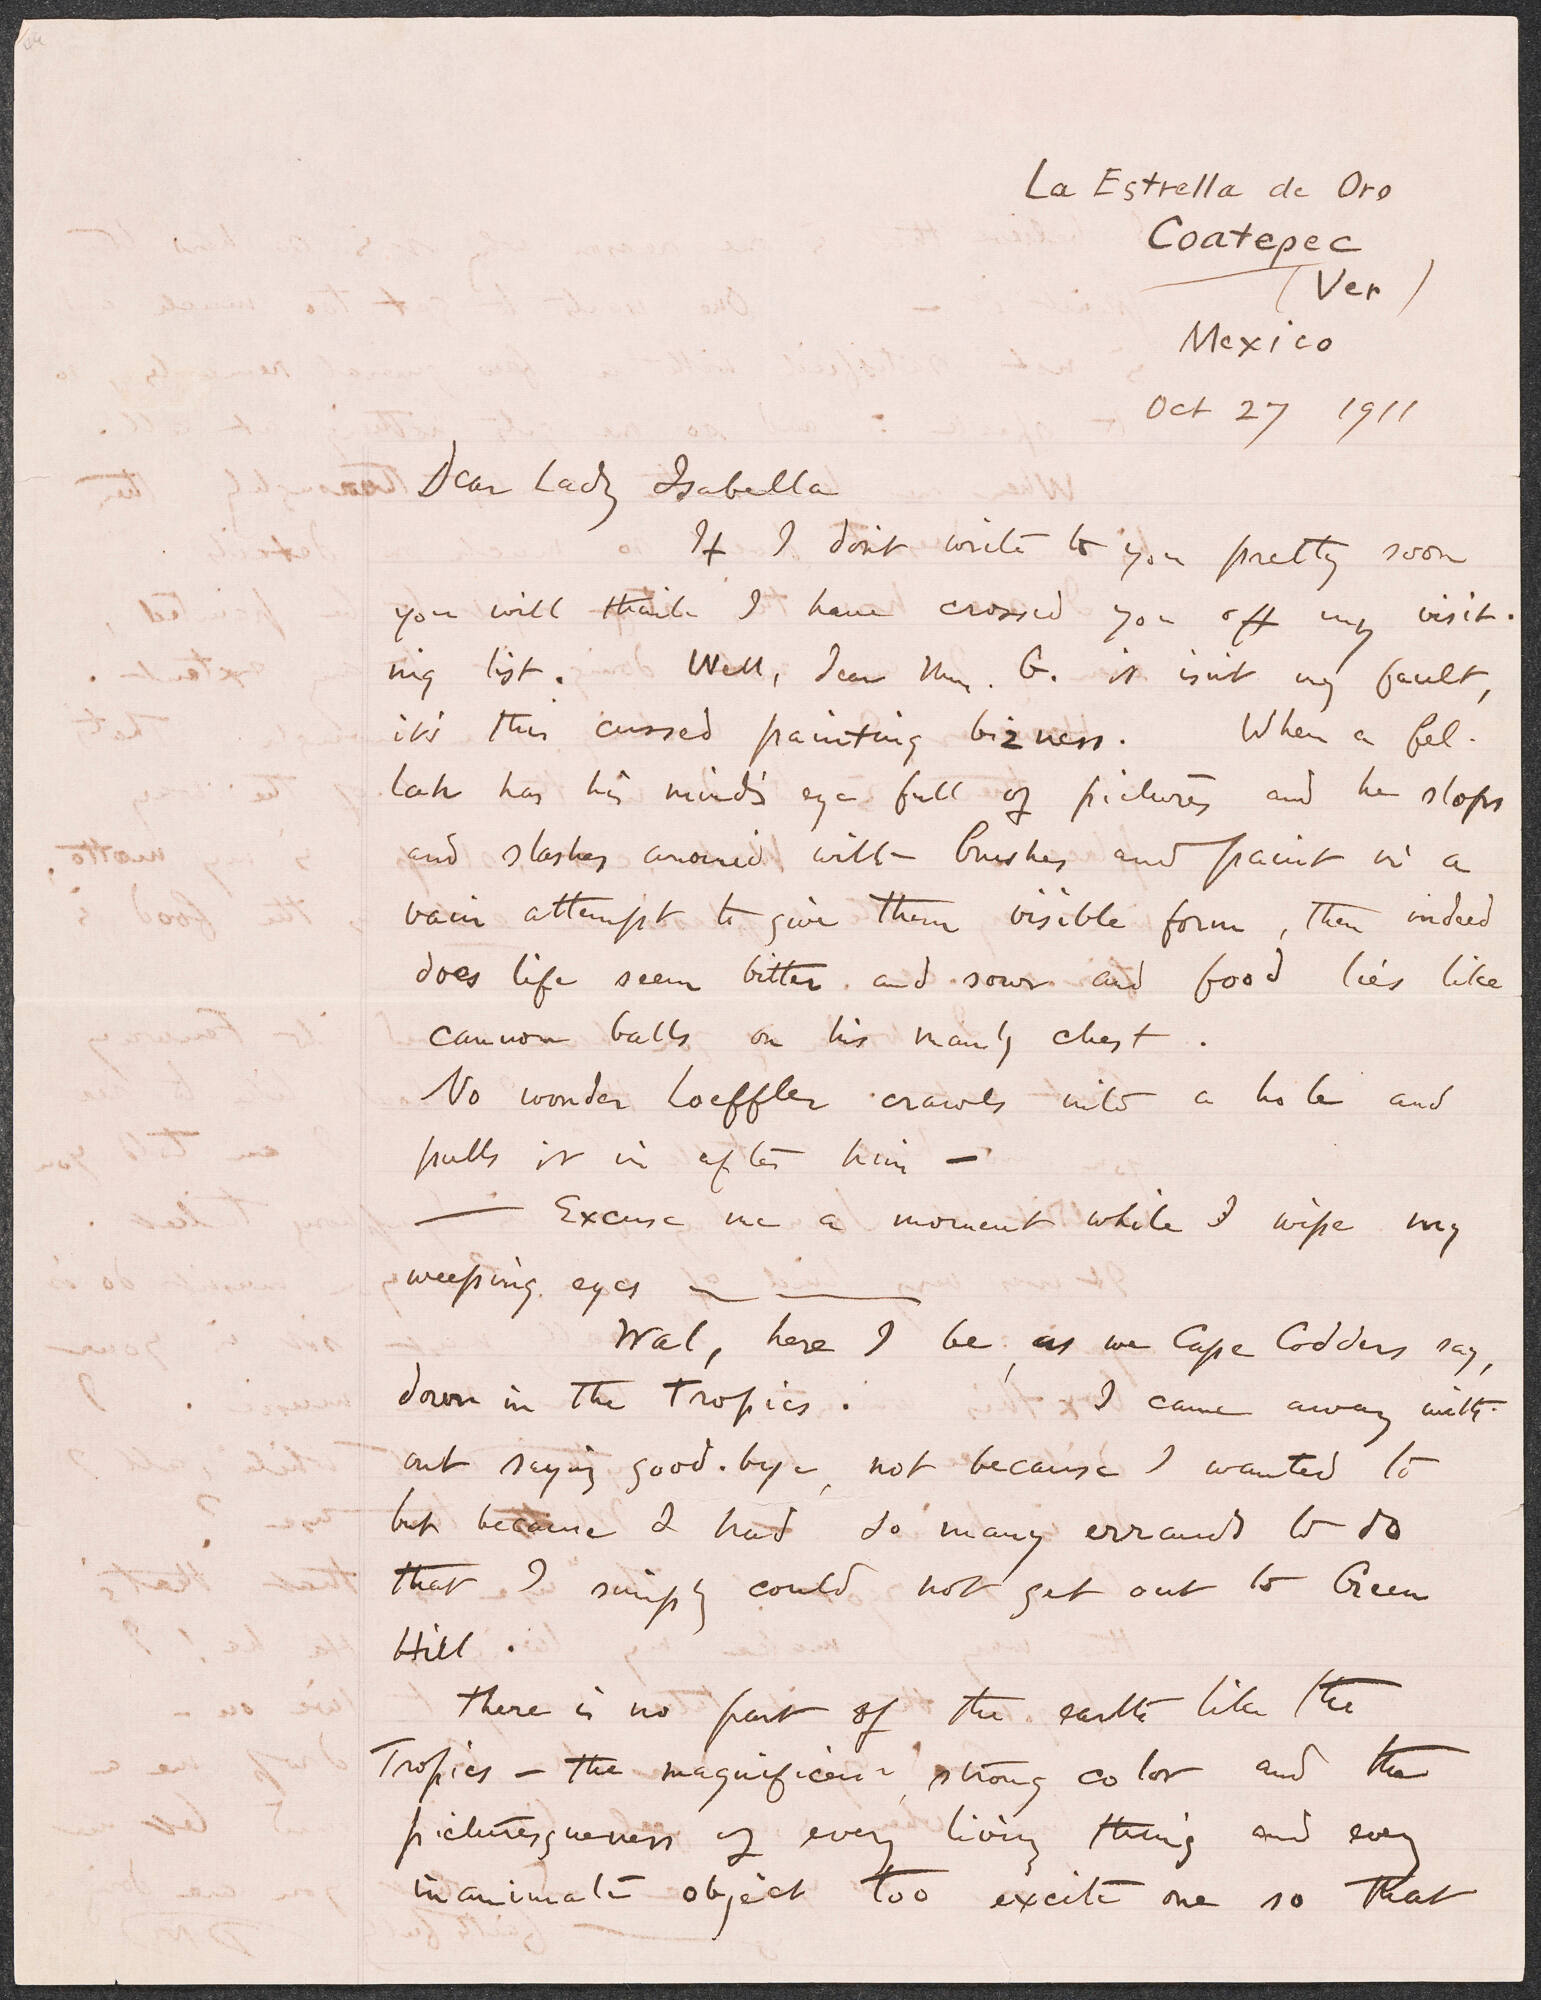 La Estrella de Oro
Coatepec
(Ver)
Mexico
Oct 27 1911
Dear Lady Isabella
If I don't write to you pretty soon
you will think I have crossed you off my visit-
ing list. Well, dear Mrs. G. it isn't my fault,
it's this cussed painting bizness. When a fel-
lah has his mind's eye full of pictures and he slops
and slashes around with brushes and paint in a
vain attempt to give them visible form, then indeed
does life seem bitter and sour and food lies like
cannon balls on his manly chest.
No wonder Loeffler crawls into a hole and
pulls it in after him —
— Excuse me a moment while I wipe my
weeping eyes — —
Wal, here I be, as we Cape Codders say,
down in the Tropics. I came away with-
out saying good-bye, not because I wanted to
but because I had so many errands to do
that I simply could not get out to Green
Hill.
There is no part of the earth like the
Tropics — the magnificent, strong color and the
picturesqueness of every living thing and every
inanimate object too excite one so that